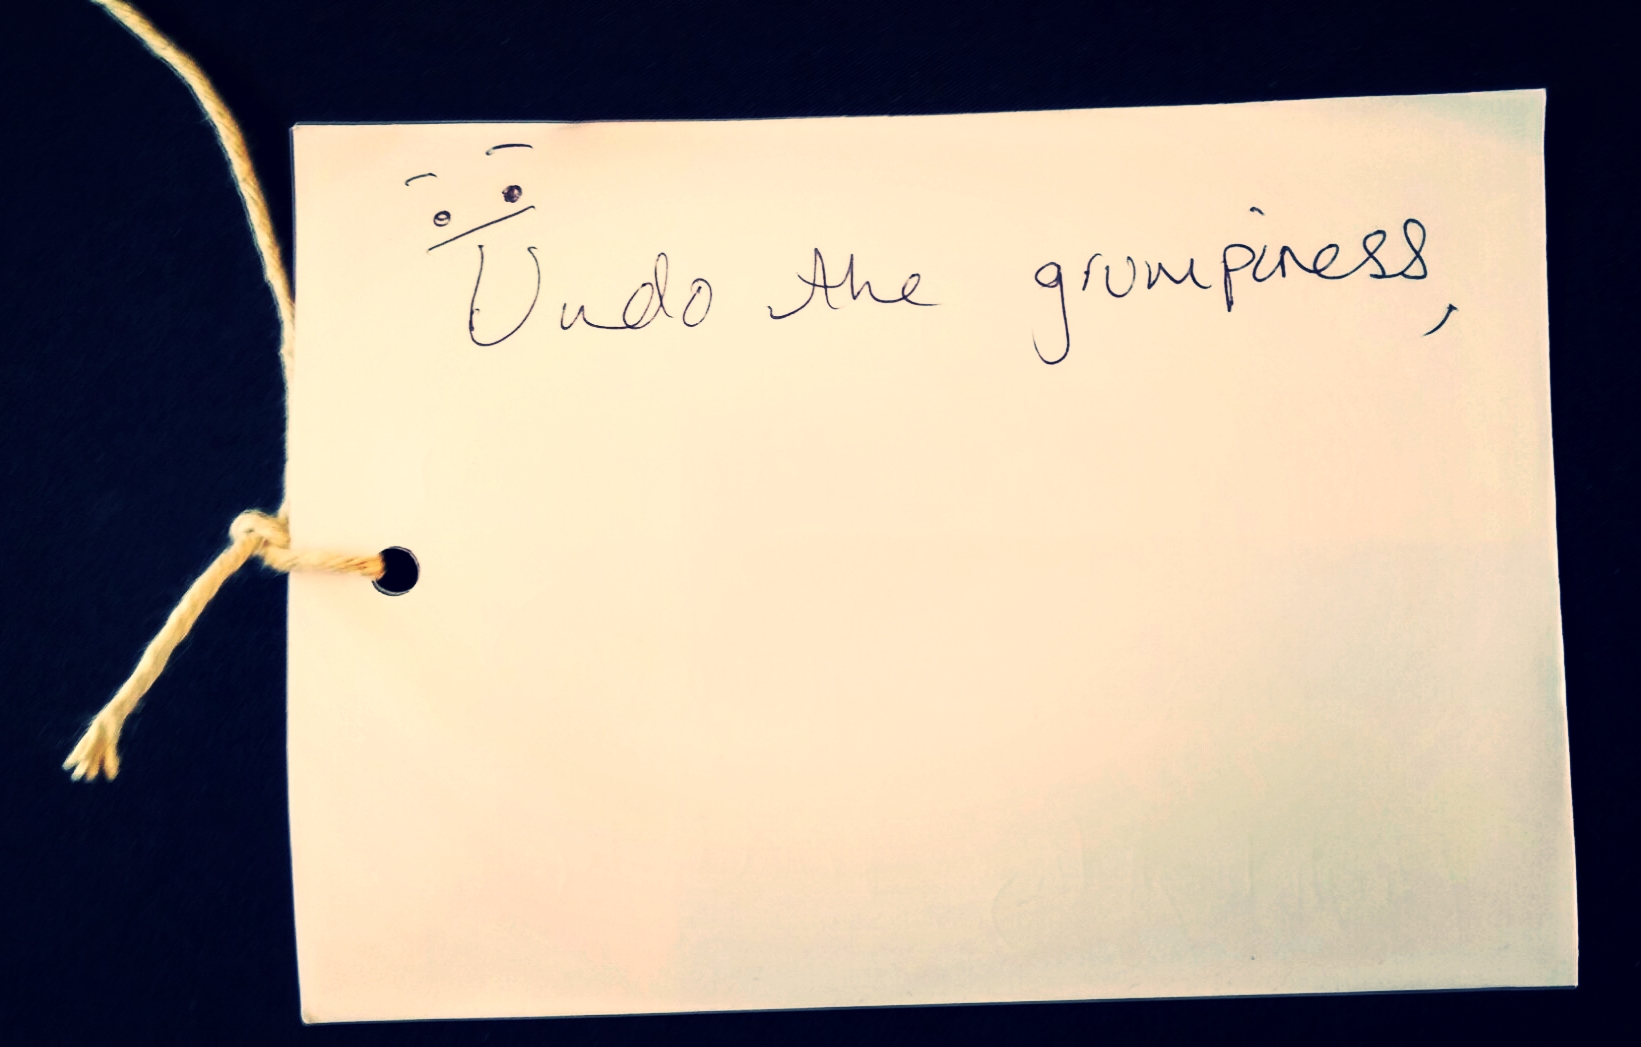 Undo the grumpiness,